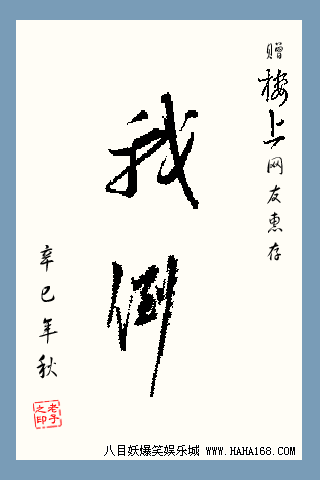 赠楼上网友惠存
我倒
辛巳年秋
老子之印
八目妖爆笑娱乐城 www.HAHA168.com